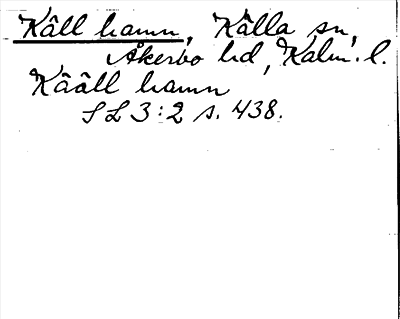 Kåll hamn, Källa sn,
Åkerbo hd, Kalm. l.
Kååll hamn
SL 3:2 s. 438.